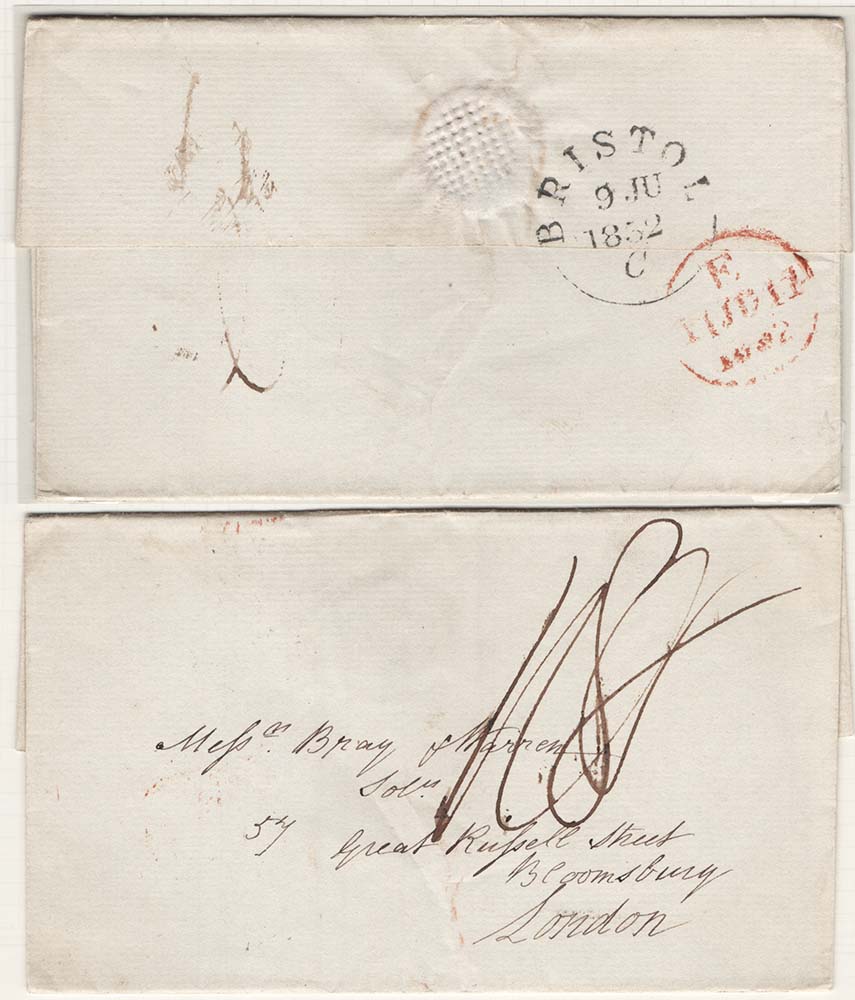 BRISTOL
9 JU
1832
C
E
11 JU 11
1832
1/8
Messrs. Bray & Warren
Solrs
57 Great Russell Street
Bloomsbury
London